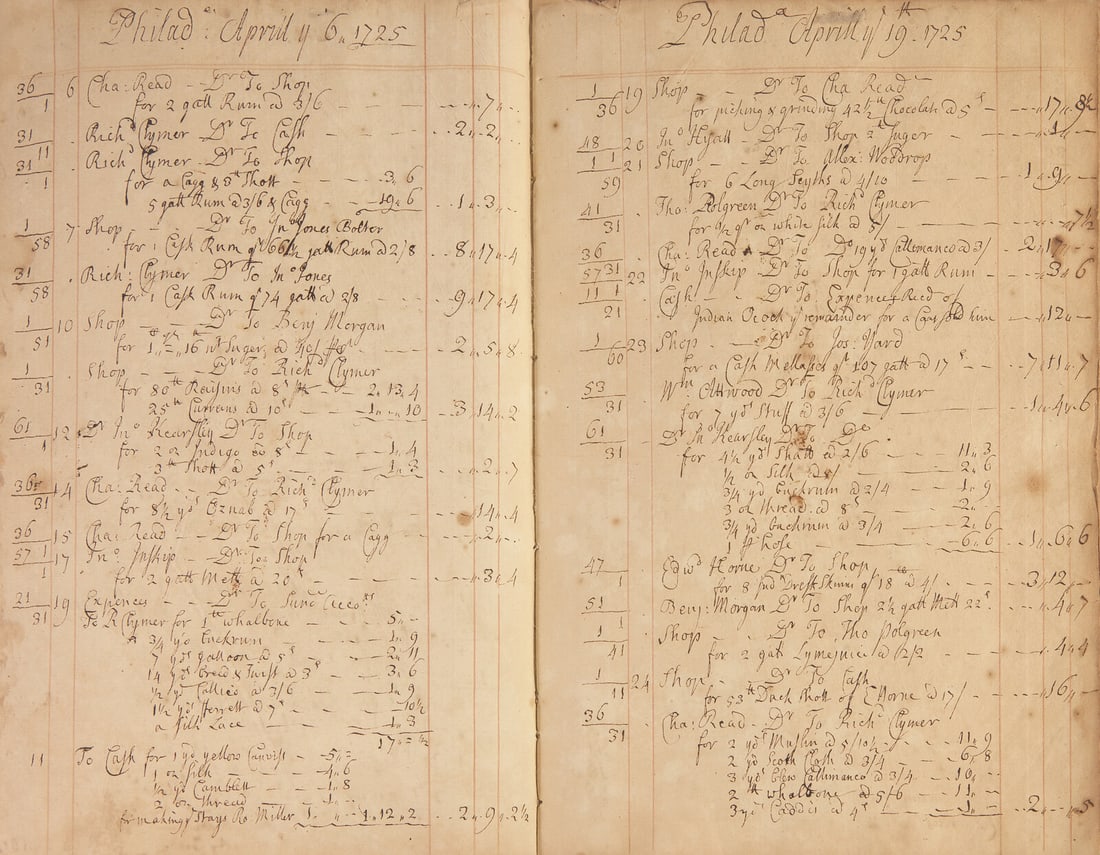 Philad.ᵃ Aprill yᵉ 6ᵗʰ 1725
36 6 Cha: Read -- Dʳ To Shop
1 for 2 gall Rum @ 3/6 - - - - - - ,, 7 ,, -
31 . Richᵈ Clymer - Dʳ To Cash - - - - 2 ,, 2 ,, -
11
31 Richᵈ Clymer - Dʳ To Shop
1 for a Cagg & 8ᵗʰ Shott - - - 3 ,, 6
5 gall Rum @ 3/6 & Cagg - - 19 ,, 6 - - 1 ,, 3 ,, -
1 7 Shop - - - Dʳ To Jnᵒ Jones Bolter
58 for 1 Cask Rum qᵗ 66½ gall Rum @ 2/8 - - 8 ,, 17 ,, 4
31 . Rich: Clymer Dʳ To Jnᵒ Jones
58 for 1 Cask Rum qᵗ 74 gall @ 2/8 - - - - 9 ,, 17 ,, 4
1 10 Shop - - Dʳ To Benj Morgan
51 for 1 ,, 16 nᵗ Suger @ 40/ - - - 2 ,, 5 ,, 8
1 . Shop - - - Dʳ To Richᵈ Clymer
31 for 80ᵗʰ Raisins @ 8ᵈ - - 2 ,, 13 ,, 4
25ᵗʰ Currans @ 10ᵈ - - 1 ,, - ,, 10 - - 3 ,, 14 ,, 2
61 12 Dʳ Jnᵒ Kearsley Dʳ To Shop
1 for 2 oz Indigo @ 8ᵈ - - 1 ,, 4
3ᵗʰ Shott @ 5ᵈ - - - 1 ,, 3 - - - ,, 2 ,, 7
36 14 Cha: Read - - Dʳ To Richᵈ Clymer
31 for 8½ yᵈˢ Oznab @ 17ᵈ
36 15 Cha: Read - - Dʳ To Shop for a Cagg - - ,, 2 ,, -
57 1 17 Jnᵒ Inskip - - Dʳ To Shop
1 for 2 gall Mellˢ @ 20ᵈ - - - - - ,, 3 ,, 4
21 19 Expences - - Dʳ To Sund Accoᵗˢ
31 To R Clymer for 1ᵗʰ whalbone - - 5 ,, -
3/4 yᵈ buckrum - - - 1 ,, 9
7 yᵈˢ galloon @ 5ᵈ - - 2 ,, 11
14 yᵈ bread & Twist @ 3ᵈ - - 3 ,, 6
½ yᵈ Callico @ 3/6 - - 1 ,, 9
1½ yᵈ Ferrett @ 7ᵈ - - - 10½
a Silk Lace - - - 1 ,, 3
17 ,, - ½
11 To Cash for 1 yᵈ yellow Canviss - - 5 ,, -
1 oz Silk - - - 4 ,, 6
½ yᵈ Camblett - - 1 ,, 8
2 oz thread - - - 1 ,, -
for making yᵉ Stays Ro Miller 1 ,, - 1 ,, 12 ,, 2 - - 2 ,, 9 ,, 2½
Philadᵃ Aprill yᵉ 19ᵗʰ 1725
1 19 Shop - - Dʳ To Cha Read
36 for picking & grinding 42½ᵗʰ Chocolate @ 5ᵈ - - ,, 17 ,, 8½
48 20 Jnᵒ Hyatt - Dʳ To Shop 2ᵗʰ Suger - - - ,, 1 ,, -
1
1 21 Shop - - Dʳ To Allexʳ Woddrop
59 for 6 Long Scyths @ 4/10 - - - 1 ,, 9 ,, -
41 . Tho: Polgreen Dʳ To Richᵈ Clymer
31 for ½ qʳ oz white silk @ 5/ - - - ,, - ,, 7½
36 . Cha: Read Dʳ To Dᵒ 19 yᵈ Callemanco @ 3/ - 2 ,, 17 ,, -
31
57 1 22 Jnᵒ Inskip - Dʳ To Shop for 1 gall Rum - - - ,, 3 ,, 6
11 . Cash - - - Dʳ To Expences Recd of
21 Indian Peach yᵉ remainder for a Coat Sold him - ,, 12 ,, -
1 23 Shop - - Dʳ To Jos: Yard
60 for a Cask Mellasses qᵗ 107 gall @ 17ᵈ - - 7 ,, 11 ,, 7
53 . Wᵐ Attwood Dʳ To Richᵈ Clymer
31 for 7 yᵈˢ Stuff @ 3/6 - - - - 1 ,, 4 ,, 6
61 . Dʳ Jnᵒ Kearsley Dʳ To Dᵒ
31 for 4½ yᵈˢ Shall @ 2/6 - - 11 ,, 3
½ oz Silk @ 5/ - - 2 ,, 6
3/4 yᵈ buckrum @ 2/4 - - 1 ,, 9
3 oz thread @ 8ᵈ - - 2 ,, -
3/4 yᵈ buckrum @ 3/4 - - 2 ,, 6
1 pʳ hose - - - 6 ,, 6 - - 1 ,, 6 ,, 6
47 . Edwᵈ Horne Dʳ To Shop
1 for 8 Ind Drest Skinns qᵗ 18 @ 4/ - - - 3 ,, 12 ,, -
51 . Benj: Morgan Dʳ To Shop 2½ gall Mell 22ᵈ - - ,, 4 ,, 7
1
1 . Shop - - Dʳ To Tho Polgreen
41 for 2 gall Lymejuice @ 2/2 - - - - ,, 4 ,, 4
1 24 Shop - - Dʳ To Cash
11 for 53ᵗʰ of E Horne @ 17/ - - - - ,, 16 ,, -
36 . Cha: Read - - Dʳ To Richᵈ Clymer
31 for 2 yᵈˢ Muslin @ 5/10½ - - 11 ,, 9
2 yᵈ Scoth Cloth @ 3/4 - - 6 ,, 8
3 yᵈˢ blew Callimanco @ 3/4 - - 10 ,, -
2ᵗʰ whalbone @ 5/6 - - 11 ,, -
3 yᵈˢ Caddis @ 4ᵈ - - 1 ,, - - - 2 ,, - ,, 5